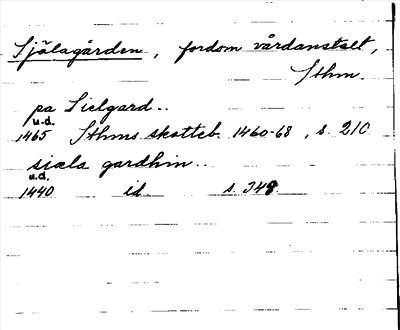 Själagården, fordom vårdanstalt,
Sthm.
pa Sielgard..
u.d.
1465 Sthms skatteb. 1460-68, s. 210
siæla gardhin..
u.d.
1440 id. s. 348